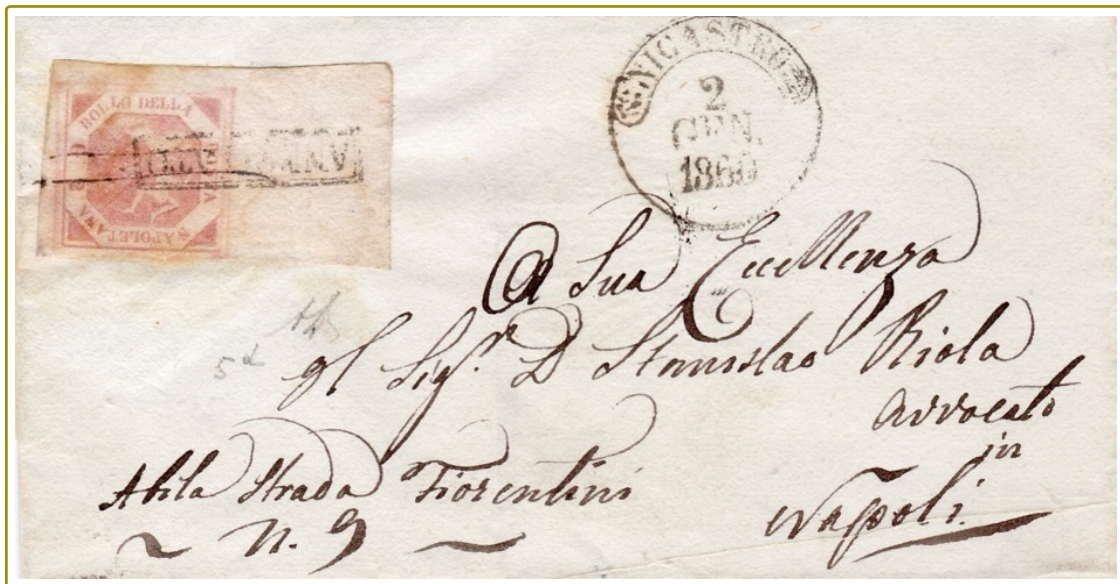 BOLLO DELLA
NAPOLETANA
ANNULLATO
NICASTRO
2
GEN.
1860
A Sua Eccellenza
Il Sig.r D Stanislao Riola
Avvocato
in
Napoli.
5d
Abita Strada Fiorentini
~ N. 9 ~